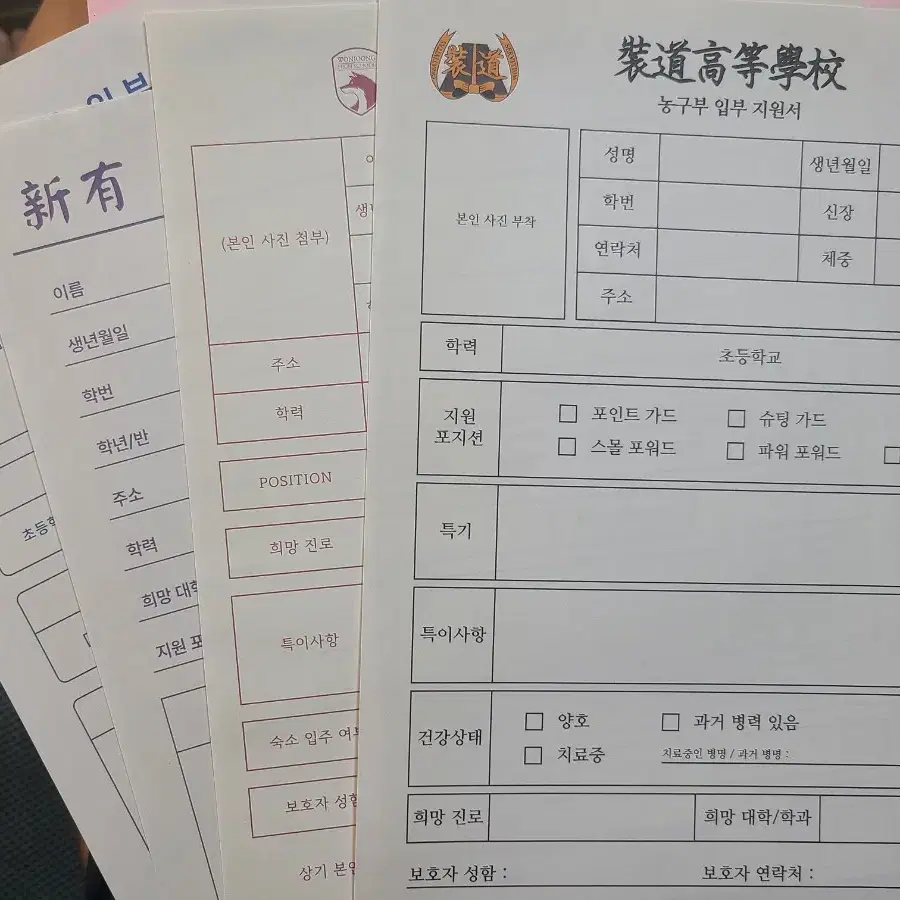 입부
新有
이름
생년월일
학번
학년/반
주소
학력
희망 대학
지원 포
WONJOONG
(본인 사진 첨부)
주소
학력
POSITION
희망 진로
특이사항
숙소 입주 여부
보호자 성함
상기 본인
裝道
裝道高等學校
농구부 입부 지원서
본인 사진 부착
성명
생년월일
학번
신장
연락처
체중
주소
학력
초등학교
지원
포지션
포인트 가드
슈팅 가드
스몰 포워드
파워 포워드
특기
특이사항
건강상태
양호
과거 병력 있음
치료중
치료중인 병명 / 과거 병명 :
희망 진로
희망 대학/학과
보호자 성함 :
보호자 연락처 :